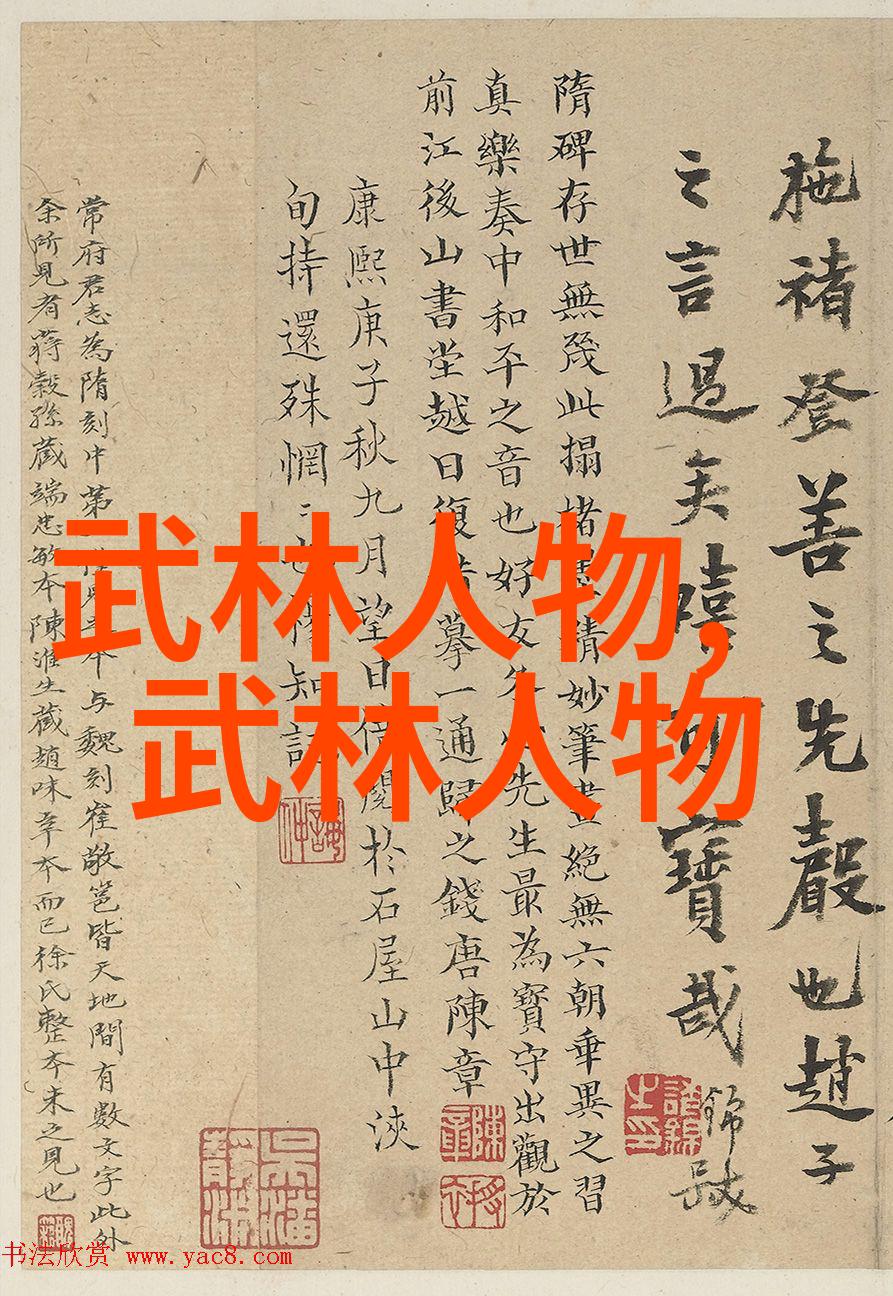 武林人物,
武林人物
施褚登善之先聲也趙子
之言過矣嘻可寶哉 錦
隋碑存世無幾此搨楮墨精妙筆畫絕無六朝垂異之習
真樂奏中和平之音也好友先生最為寶守出觀於
前江後山書堂越日復摹一通歸之錢唐陳章
康熙庚子秋九月望日借閱於石屋山中浹
旬持還殊惘〻也知記
常府君志為隋刻中第本与魏刻崔敬邕皆天地間有數文字此外
余所見有蔣穀孫藏端忠敏本陳淮生藏趙味辛本而已徐氏整本未之見也
书法欣赏 www.yac8.com